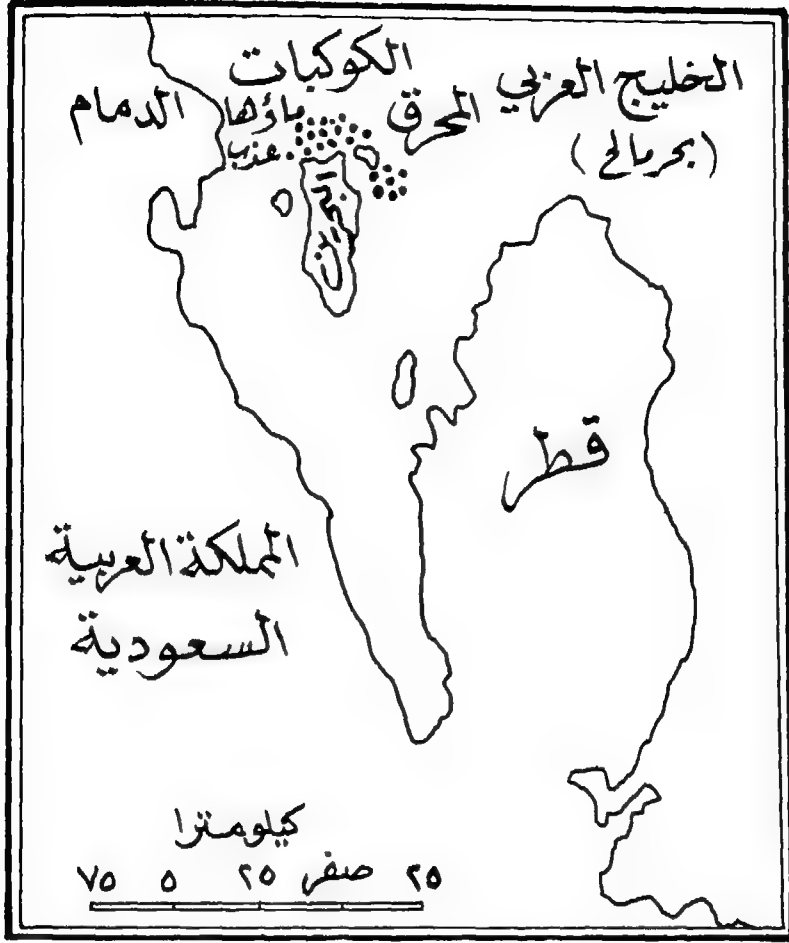 الكوكبات
الخليج العربي
(بحر مالح)
المحرق
ماؤها
عذب
الدمام
البحرين
قطر
المملكة العربية
السعودية
كيلومترا
٧٥ ٥ ٢٥ صفر ٢٥